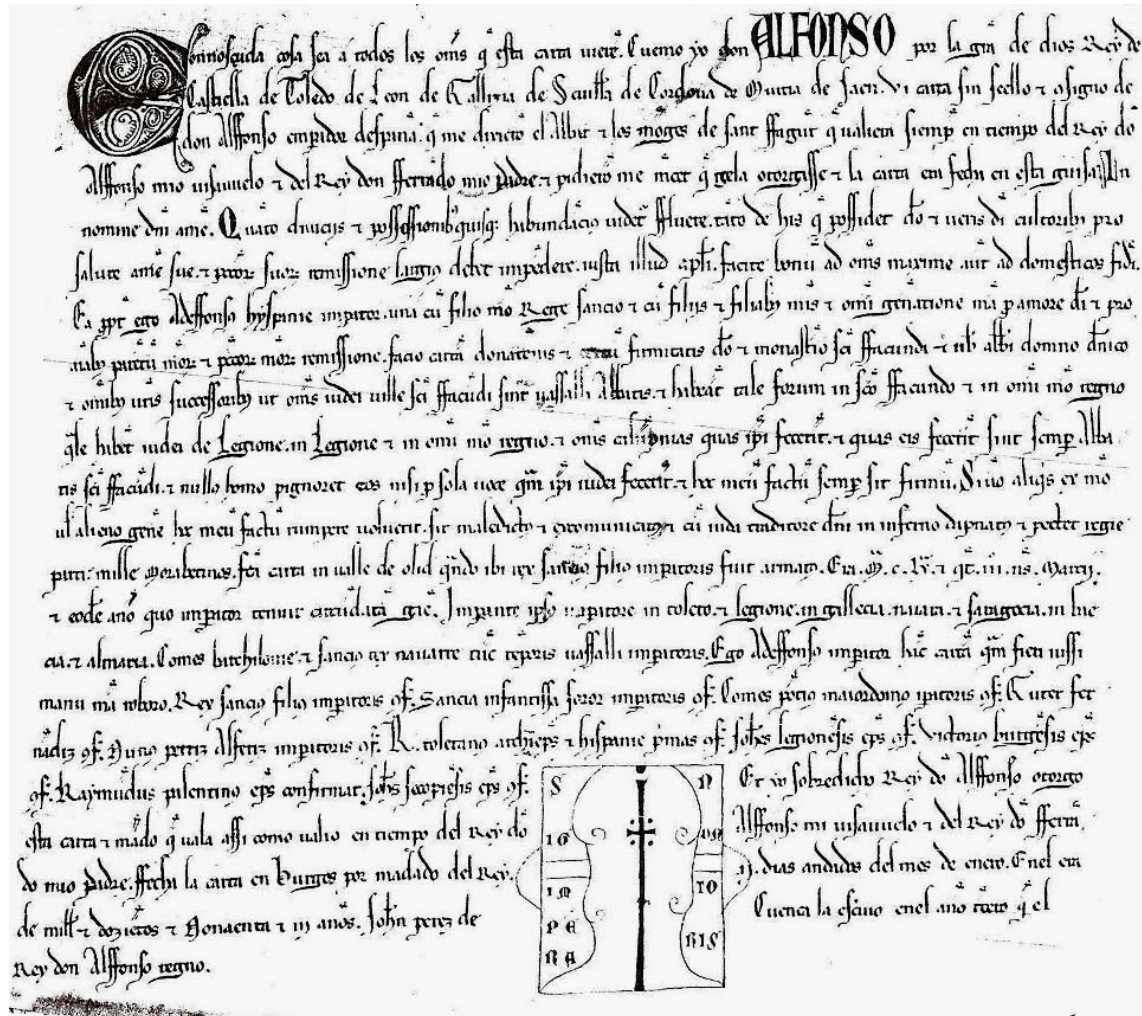 Connosçuda cosa sea a todos los oms q̃ esta carta uierẽ. Cuemo yo don ALFONSO por la grã de dios Rey de
Castiella de Toledo de Leon de Gallizia de Seuilla de Cordoua de Murcia de Jaen. Vi carta sin seello τ a signo de
don Alffonso emperador despanna. q̃ me dixierõ el Abbat τ los mõges de sant ffagũt q̃ ualiera siemp̃ en tiempo del Rey dõ
Alffonso mio uisauuelo τ del Rey don fferrãdo mio padre. τ pidierõ me mercet q̃ gela otorgasse τ la carta era fecha en esta guisa. In
nomine dñi amẽ. Quãto diuiciis τ possessionibꝰ quisqꝫ habundãcius uidet̃ ffluere. tãto de his q̃ possidet dõ τ ueris di cultoribꝰ pro
salute anime sue. τ petõr suoꝝ remissione largiꝰ debet impẽdere. iusta illud apłi. facite bonũ ad oms maxime aut̃ ad domesticos fidi.
Ea ppt̃ ego Adeffonsꝰ hyspanie impator. una cũ filio mõ Rege sancio τ cũ filiis τ filiabꝰ mis τ omi genatione mã p amore di τ pro
aĩabꝰ parẽtũ moꝝ τ petõr moꝝ remissione. facio cartã donatõnis τ firmitatis dõ τ monastio sci ffacundi τ tibi abbi domno dñico
τ omibꝰ uris successoribꝰ ut oms iudei uille sci ffacũdi sint uassalli Abbatis. τ habeãt tale forum in scõ ffacundo τ in omi mõ regno
q̃le habẽt iudei de Legione. in Legione τ in omi mõ regno. τ oms calũpnias quas ipi fecerĩt. τ quas eis fecerĩt sint semp Abba
tis sci ffacũdi. τ nullꝰ homo pignoret eos nisi p sola uoce qm ipi iudei fecerĩt. τ hoc meũ factũ semp sit firmũ. Si uõ aliqis ex mõ
ul alieno gene hoc meũ factũ rumpere uoluerit. sit maledictꝰ τ excomunicatꝰ τ cũ iuda traditore dñi in inferno dãpnatꝰ τ pectet regie
parti mille morabetinos. fcã carta in ualle de olid qñdo ibi rex sanciꝰ filiꝰ impatoris fuit armatꝰ. Era M. c. Lx. τ q̃t. iii. ns. Marcii.
τ eodẽ anõ quo impator tenuit Impante ipso impatore in toleto. τ legione. in gallecia. naiara. τ saragocia. in bae
cia. τ almaria. Comes barchilonie. τ sancius rex nauarre tũc tẽporis uassalli impatoris. Ego Adeffonsꝰ impator hãc cartã qm fieri iussi
manu mã roboro. Rex sanciꝰ filiꝰ impatoris ꝯf. Sancia infantissa soror impatoris ꝯf. Comes põciꝰ maiordomꝰ ipatoris ꝯf. Guter fer
nãdiz ꝯf. Nuno petriz Alferiz impatoris ꝯf. R. toletanꝰ archieps τ hispanie p̃mas ꝯf. Johẽs legionẽsis eps ꝯf. Victoriꝰ burgẽsis eps
ꝯf. Raymũdus palentinꝰ eps confirmat. Johs secopiẽsis eps ꝯf. Et yo sobredicho Rey dõ Alffonso otorgo
esta carta τ mãdo q̃ uala assi como ualio en tiempo del Rey dõ Alffonso mi uisauuelo τ del Rey dõ fferrã
do mio padre. ffecha la carta en Burgos por mãdado del Rey. dias andados del mes de enero. En el era
de mill τ dozietos τ Nonaenta τ iii anõs. Johñ perez de Cuenca la escriuo en el ano tercero q̃ el
Rey don Alffonso regno.
S IG N ON
IM PE RA TO RIS